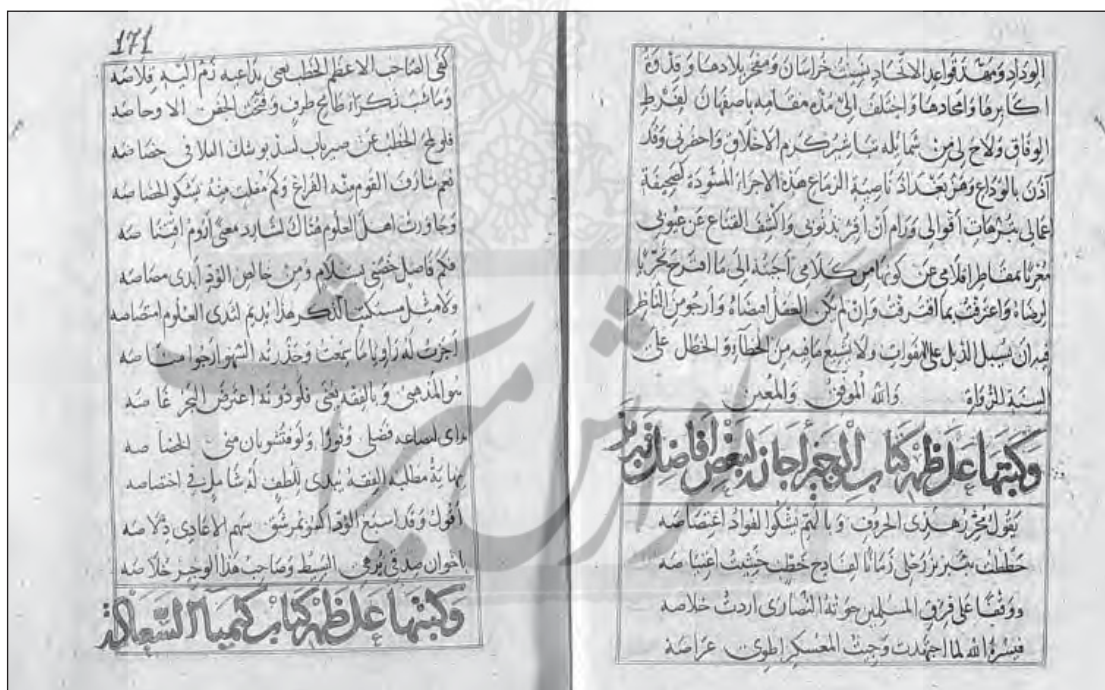 الوداد ومهّد قواعد الاتحاد نسيب خراسان ومفخر بلادها وقدوة
اكابرها وامجادها واختلف الىّ مدّة مقامه باصفهان لفرط
الوفاق ولاح لى من شمائله تباشير كرم الاخلاق واحفزنى وقد
آذن بالوداع وهزّ بغداد ناصية الزماع هذه الاجزاء المسوّدة كصحيفة
اعمالى بترهات اقوالى ورام ان اقرّ بذنوبى واكشف القناع عن عيوبى
اقلامى عن كونها من كلامى اجبته الى ما اقترح تحرّيا
لرضاه واعترفت بما اقترفت وان لم يكن العقل امضاه وارجو من الناظر
فيه ان يسبل الذيل على الهفوات ولا يشيع ما فيه من الخطاء والخطل على
السنة الرواة والله الموفق والمعين
وكتبتها على ظهر كتاب الوجيز اجازة لبعض افاضل تبريز
يقول محرّر هذى الحروف وبالهمّ يشكوا لفواد اغتصاصه
حططت بتبريز رحلى زمانا لفادح خطب خشيت اعتياصه
ووقفا على فرق المسلمين حوته النصارى اردت خلاصه
فيسره الله لما اجتهدت وجبت المعسكر اطوى عراصه
171
كفى الصاحب الاعظم الخطب
وما طب نكراء طامح طرف وفتحت الجفن الا وحاصه
فلو لمح الخطب عن صير باب لسدّ بوشك التلافى خصاصه
نعم شارف القوم منه الفراغ وكم مفلت منه يشكو الحصاصه
وجاورت اهل العلوم هناك لشارد معنى اروم اقتناصه
فكم فاضل خصّنى بسلام ومن خالص الودّ ابدى مصاصه
ولا مثل الذكر هذا نديم لدى العلوم
اجزت له راويا ما سمعت وحذّرته السهو ارجوا
سوا المذهبى وبالفقه يعنى فلو دونه اعترض البحر غاصه
راى لضاعة فضلى وفورا ولو فتشو بان منى الخصاصه
نهاية مطلبه الفقه يبدى للطف له شامل فى اختصاصه
اقول وقد اسبغ الودّ سهم الاعادى دلاصه
باخوان صدقى يرمى البسيط وصاحب هذا الوجيز خلاصه
وكتبتها على ظهر كتاب كيمياء السعادة